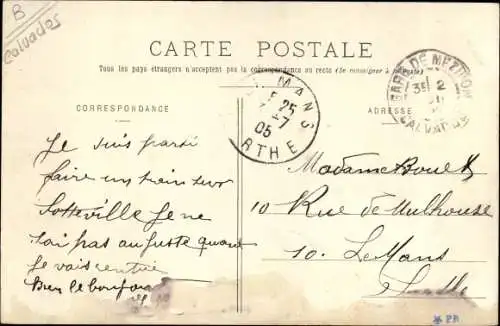 B
Calvados
CARTE POSTALE
Tous les pays étrangers n'acceptent pas la correspondance au recto (Se renseigner à la poste)
CORRESPONDANCE
ADRESSE
MANS
25
-7
05
RTHE
GARE DE MEZIDON
35 2
CALVADOS
Je suis parti
faire un train sur
Sotteville Je ne
sai pas au juste quant
Je vais
Bien le bonjour
Madame
10 Rue de Mulhouse
10. Le Mans
Sarthe